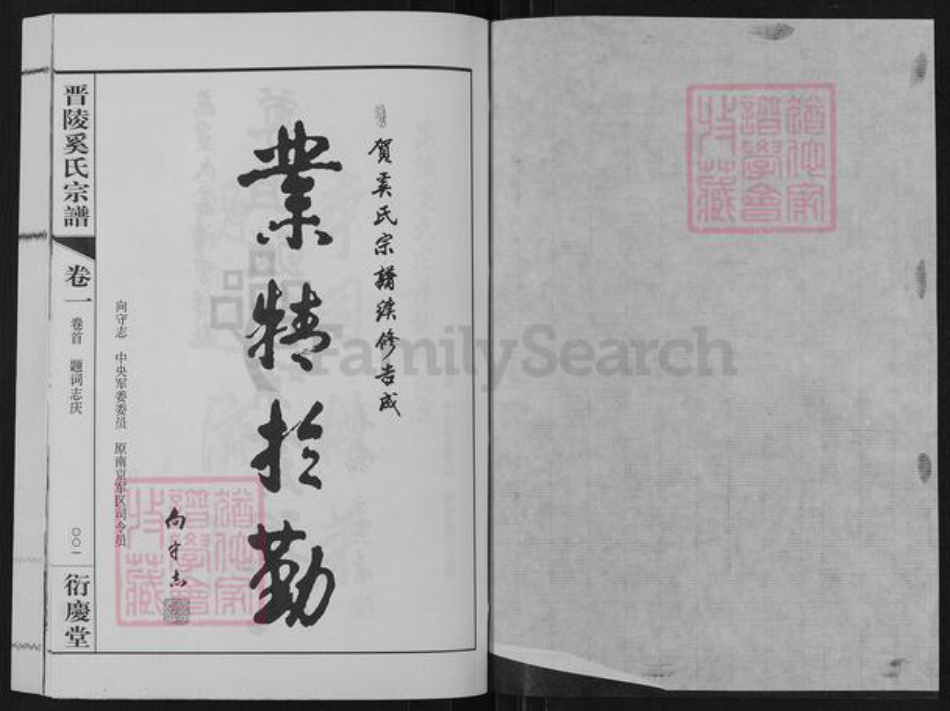 賀奚氏宗譜续修告成
業精於勤
向守志
向守志 中央军委委员 原南京军区司令员
晋陵奚氏宗譜
卷一
卷首 题词志庆
〇〇一
衍慶堂
FamilySearch
譜學會
收藏